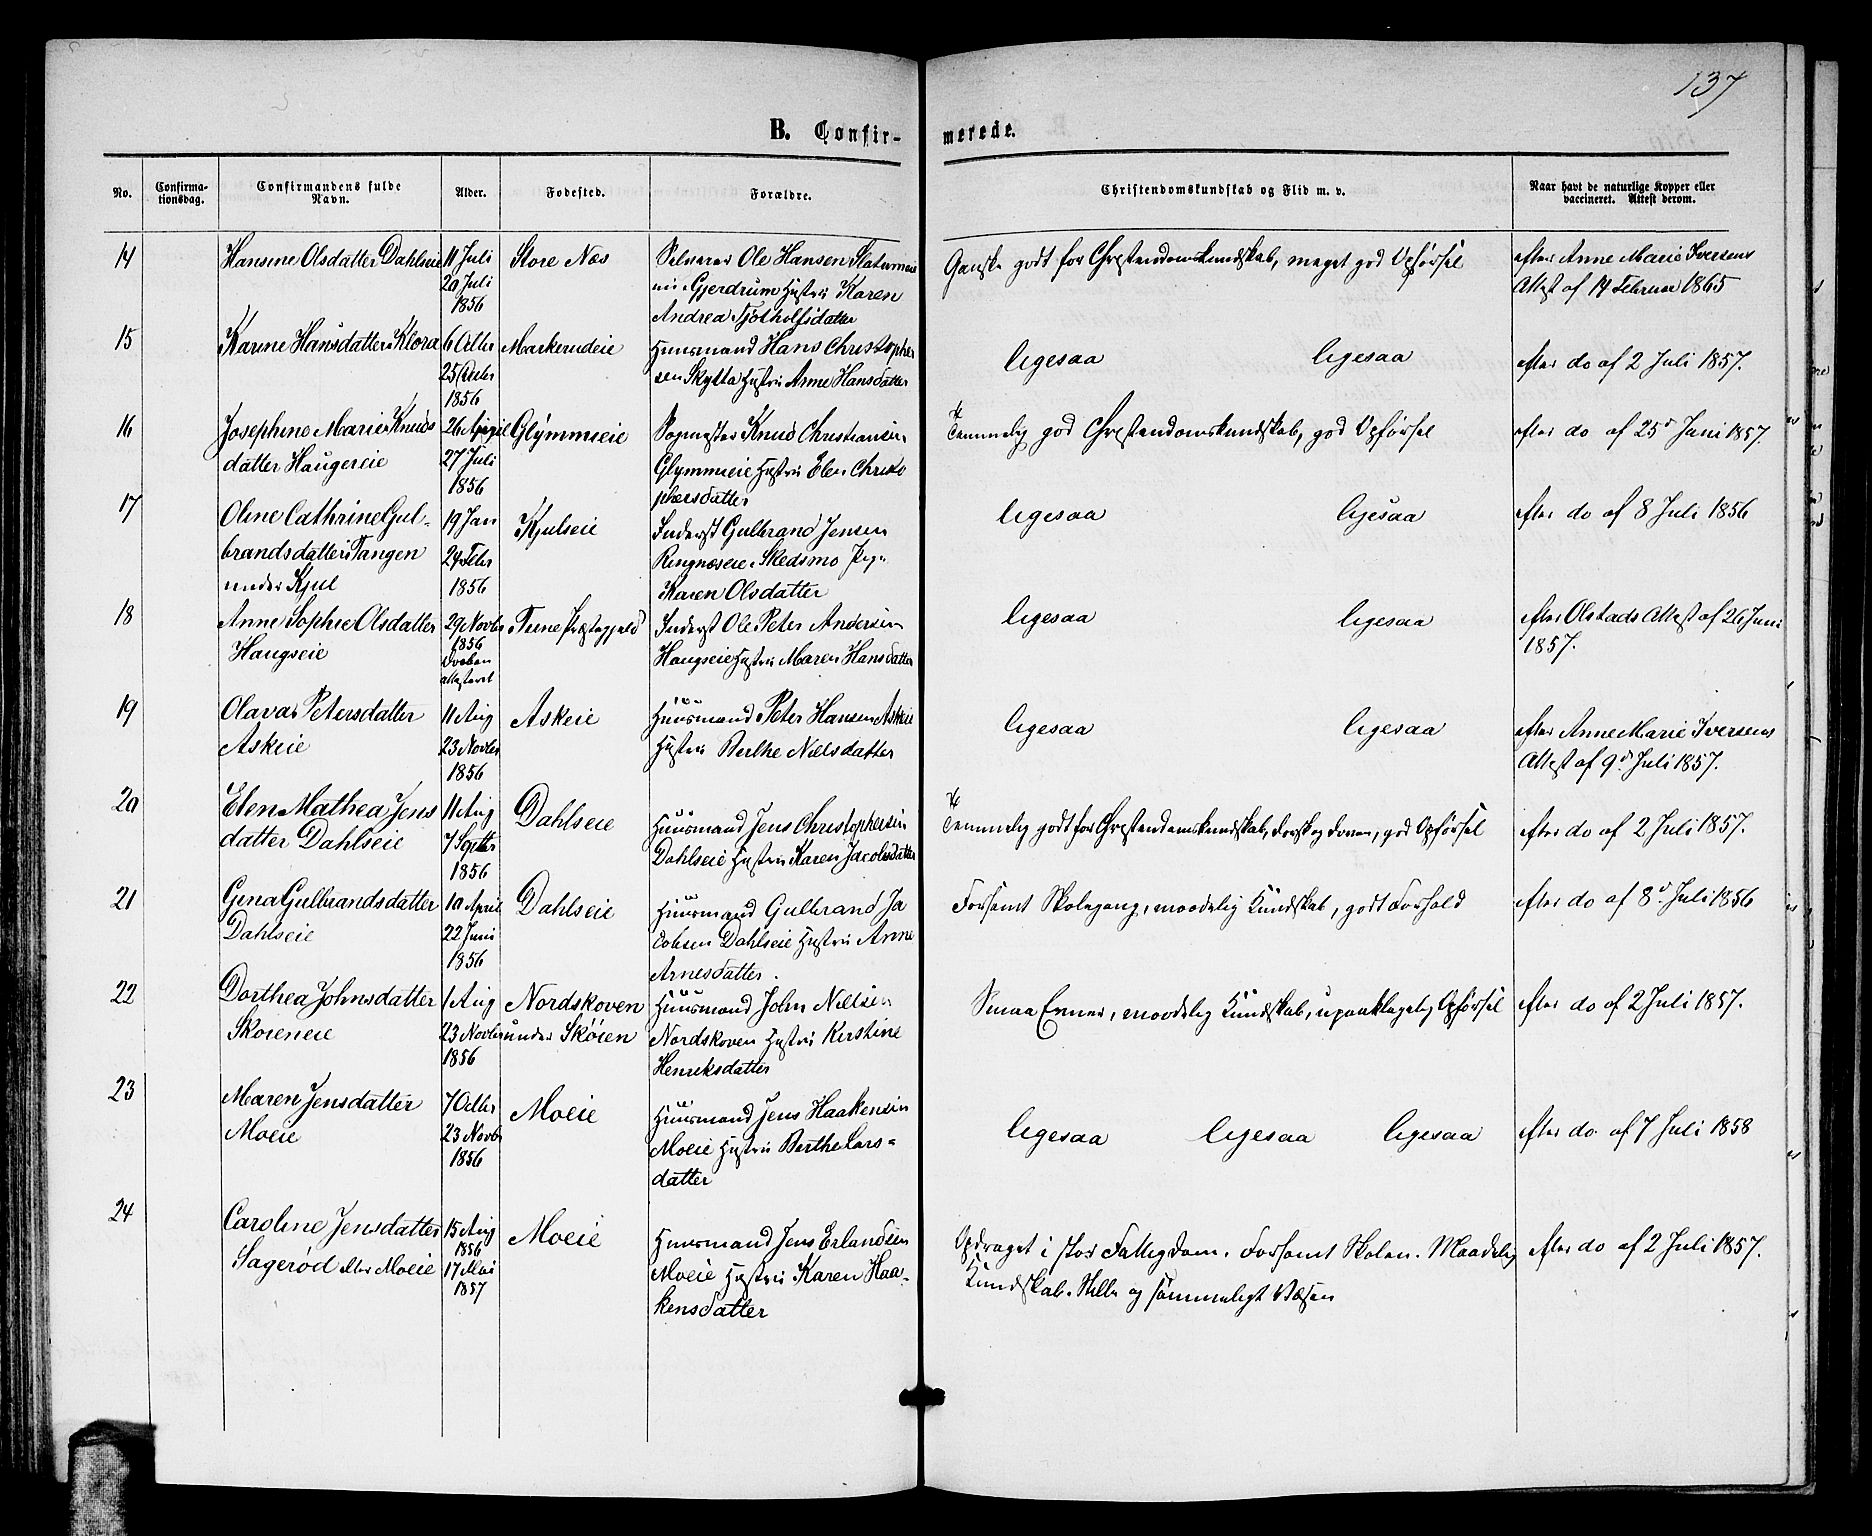 137
B. Confir-
merede.
No.
Confirma-
tionsdag.
Confirmandens fulde
Navn.
Alder.
Fødested.
Forældre.
Christendomskundskab og Flid m. v.
Naar havt de naturlige Kopper eller
vaccineret. Attest derom.
14
Hansine Olsdatter Dahlseie
11 Juli
20 Juli
1856
Store Næs
Ole Hansen
Gjerdrum Hustru Karen
Andrea
Ganske godt for Christendomskundskab, meget god Opførsel
efter Anne Marie Iversens
Attest af 14 Februar 1865
15
Karine Hansdatter Klora
6 Octbr
25 Octbr
1856
Markerudeie
Huusmand Hans Christopher
sen Skytta Hustru Anne Hansdatter
ligesaa ligesaa
efter do af 2 Juli 1857.
16
Josephine Marie Knuds
datter Haugereie
26 April
27 Juli
1856
Glymmeie
Knud Christiansen
Glymmeie Hustru Elen Christo
phersdatter
Temmelig god Christendomskundskab, god Opførsel
efter do af 25d Juni 1857.
17
Oline Cathrine Gul-
brandsdatter Tangen
under Kjul
19 Jan
24 Febr
1856
Kjulseie
Inderst Gulbrand Jensen
Ringnæseie i Skedsmo Pige
Karen Olsdatter
ligesaa ligesaa
efter do af 8 Juli 1856
18
Anne Sophie Olsdatter
Haugseie
29 Novbr
1856
Daaben
attesteret
Tune Præstegjeld
Inderst Ole Peter Andersen
Haugseie Hustru Maren Hansdatter
ligesaa ligesaa
efter Olstads Attest af 26 Juni
1857.
19
Olava Petersdatter
Askeie
11 Aug
23 Novbr
1856
Askeie
Huusmand Peter Hansen Askeie
Hustru Berthe Nielsdatter
ligesaa ligesaa
efter Anne Marie Iversens
Attest af 9d Juli 1857.
20
Elen Mathea Jens
datter Dahlseie
11 Aug
7 Septbr
1856
Dahlseie
Huusmand Jens Christophersen
Dahlseie Hustru Karen Jacobsdatter
Temmelig godt for Christendomskundskab, god Opførsel
efter do af 2 Juli 1857.
21
Gina Gulbrandsdatter
Dahlseie
10 April
22 Juni
1856
Dahlseie
Huusmand Gulbrand Ja
cobsen Dahlseie Hustru Anne
Arnesdatter.
Forsømt Skolegang, maadelig Kundskab, godt Forhold
efter do af 8d Juli 1856
22
Dorthea Johnsdatter
Skoieneie
1 Aug
23 Novbr
1856
Nordskoven
under Skøien
Huusmand John Nielsen
Nordskoven Hustru Kirstine
Henriksdatter
Smaa Evner, maadelig Kundskab, upaaklagelig Opførsel
efter do af 2 Juli 1857.
23
Maren Jensdatter
Moeie
7 Octbr
23 Novbr
1856
Moeie
Huusmand Jens Haakensen
Moeie Hustru Berthe Lars-
datter
ligesaa ligesaa ligesaa
efter do af 7 Juli 1858
24
Caroline Jensdatter
Sagerød eller Moeie
15 Aug
1856
17 Mai
1857
Moeie
Huusmand Jens Erlandsen
Moeie Hustru Karen Haa-
kensdatter
Opdraget i stor Fattigdom. Forsømt Skolen. Maadelig
Kundskab. Stille og sømmeligt Væsen
efter do af 2 Juli 1857.